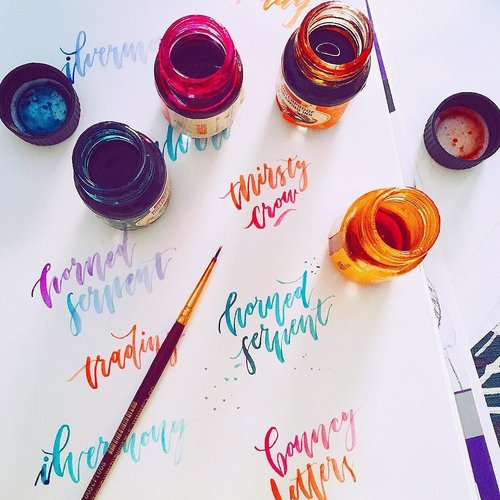 ilvermo
thirsty
crow
horned
serpent
horned
serpent
trading
ilvermony
bouncy
letters